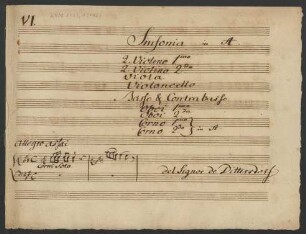 VI.
Sinfonia in A
2. Violino 1mo
2. Violino 2do
Viola
Violoncello
Basso & Contrabasso
Oboi 1mo
Oboi 2do
Corno 1mo
Corno 2do } in A
Allegro assai
Corni Solo
del Signor de Dittersdorf